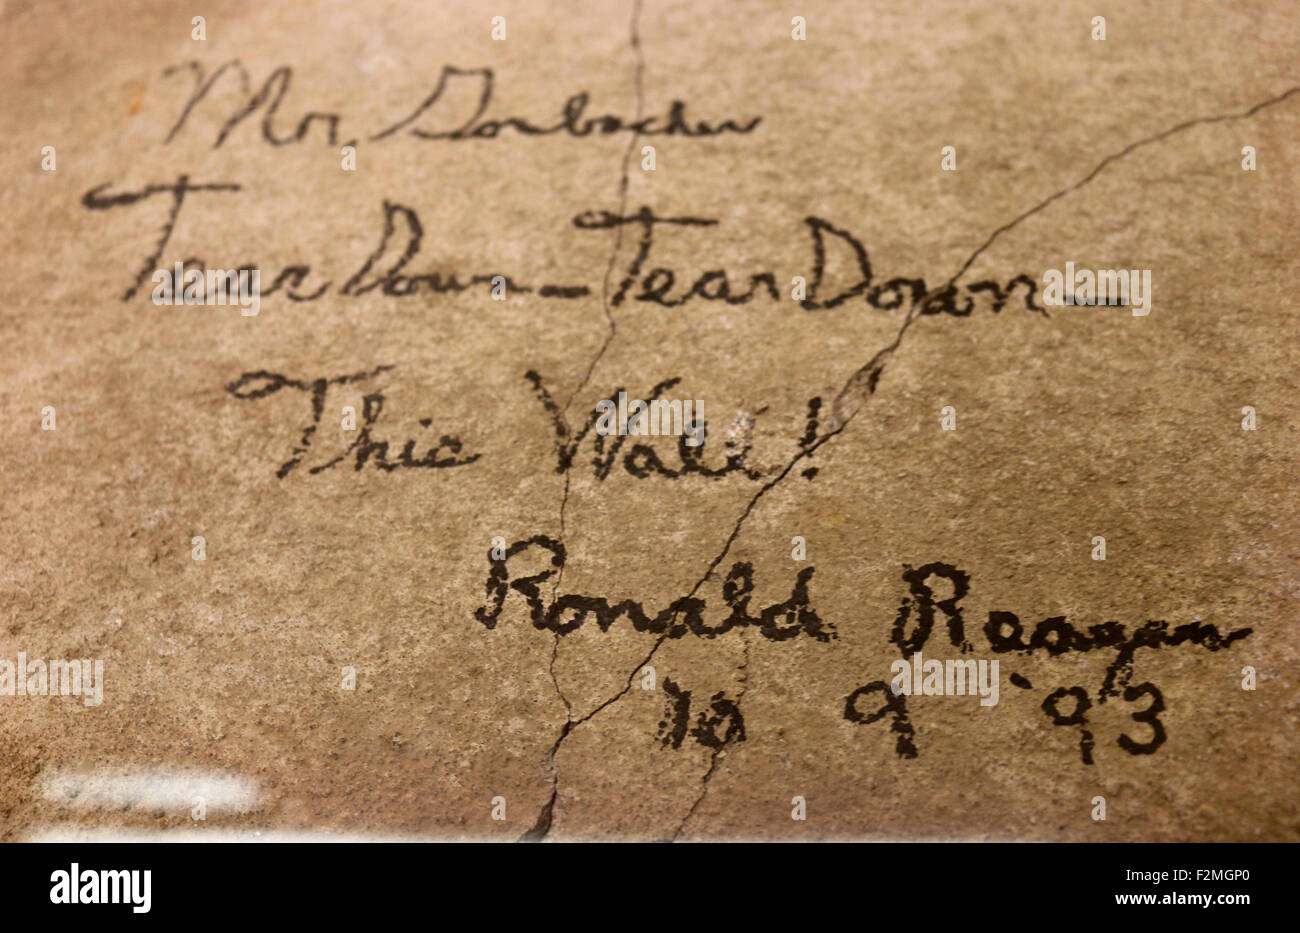 Mr. Gorbachev
Tear Down – Tear Down –
This Wall!
Ronald Reagan
10 9 '93
alamy stock photo
F2MGP0
www.alamy.com